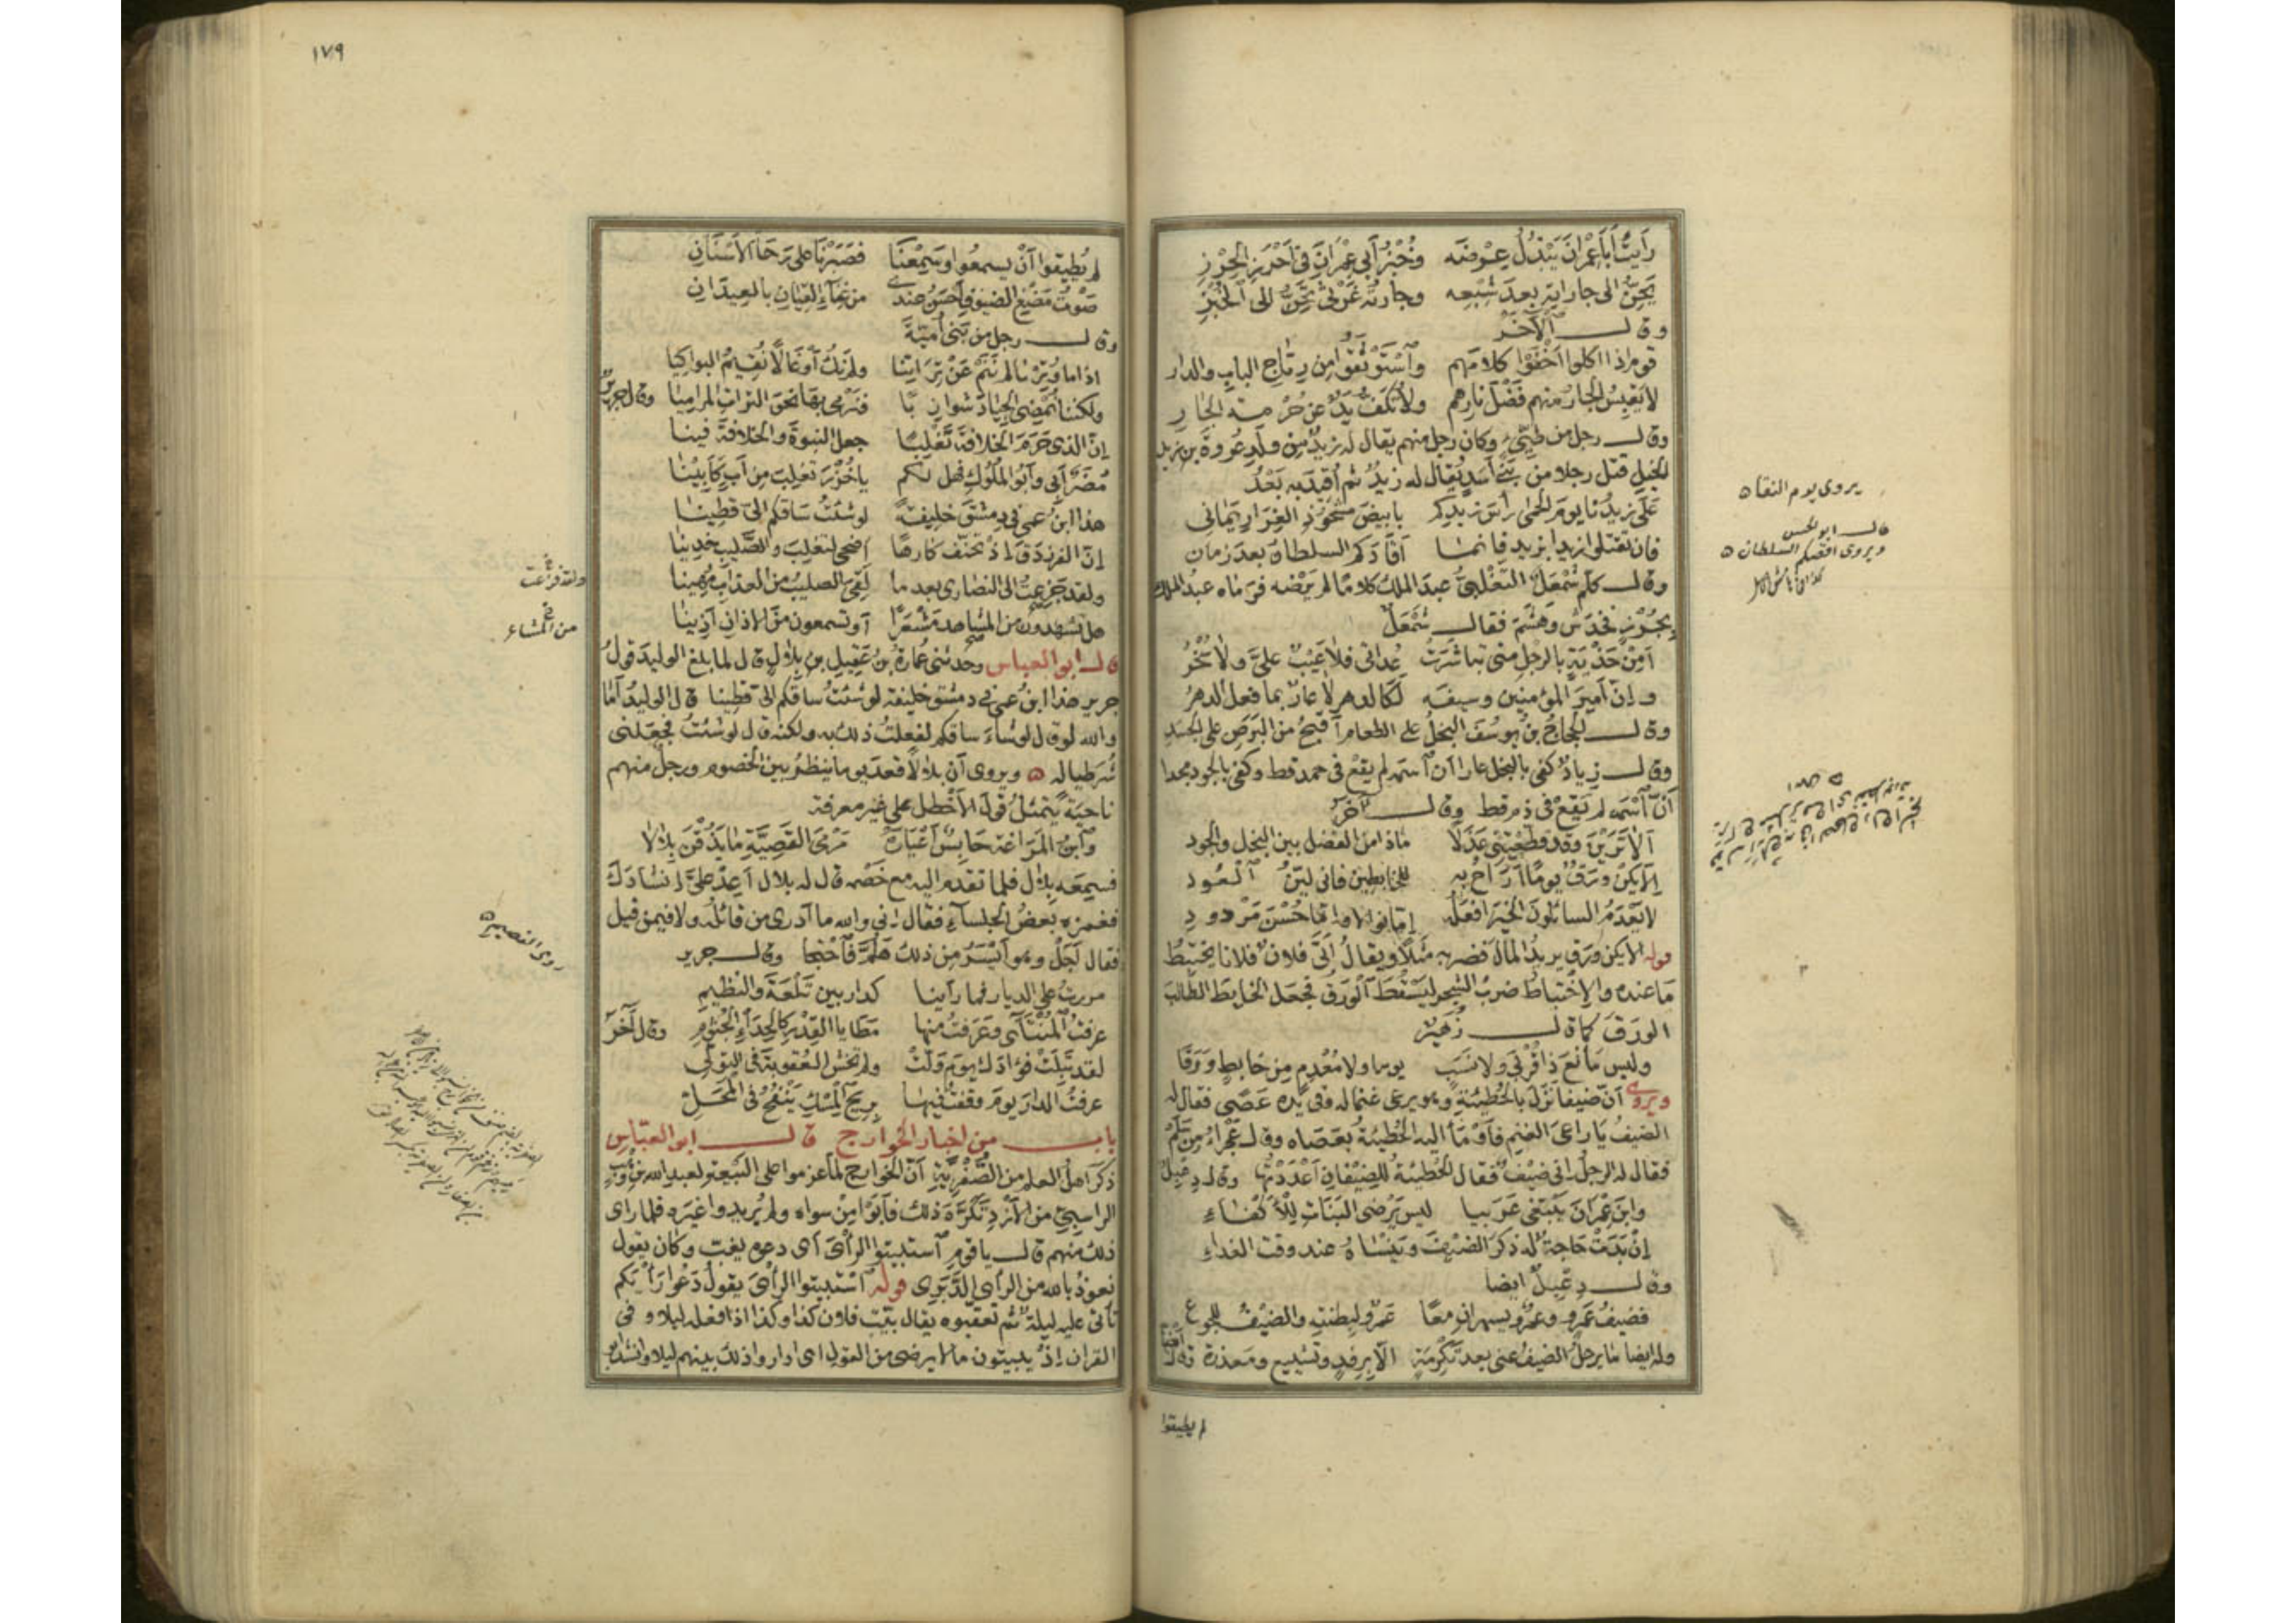 رَأيتُ أبا عِمْرانَ يَبْذُلُ عِرْضَه وخُبْزُ أبي عِمْرَانَ في أحْرَزِ الحِرْزِ
يَحِنّ الى جاراتِه بعدَ شِبْعِه وجاراتُه غَرْثى تَحِنُّ الى الخُبْزِ
وقال الآخَرُ
قوم اذا اكلوا أخْفَوْا كلامَهم واسْتَوْثَقُوا من رِتَاجِ البابِ والدار
لا يَقبِسُ الجارُ منهم فَضْلَ نارِهم ولا تَكفُّ يَدٌ عن حُرْمةِ الجَارِ
وقال رجل من طيّئٍ وكان رجل منهم يقال له زيدٌ من ولَدِ عُروةَ بن زيد
الخيلِ قتل رجلا من بَني أسَدٍ يُقال له زيدٌ ثم أُقِيدَ به بَعْدُ
عَلَى زيدُنا يومَ الحِمَى رأسَ زيدِكم بابيضَ مَشْحُوذِ الغِرَارِ يَمانى
فان تقتلوا زيدا بزيدٍ فانما أقادَكم السلطانُ بعدَ زمانِ
وقال كلّم شَمْعَلُ التَغْلِبيُّ عبدَ الملك كلامًا لم يَرْضَه فرماه عبدُ الملك
بجُرْزٍ فخدَشَ وهَشَمَ فقال شَمْعَل
أمِنْ حَذْيَةٍ بالرِجلِ منى تباشَرَتْ عُداتى فلا عَيبٌ علىَّ ولا سُخْرُ
وإنّ أميرَ المؤمنين وسيفَه لَكالدهرِ لا عارٌ بما فعل الدهرُ
وقال الحجاجُ بنُ يوسُفَ البخلُ على الطعام أقبحُ من البَرَصِ على الجسَدِ
وقال زيادٌ كفى بالبخل عارا أنّ اسمَه لم يقعْ في حمد قط وكفى بالجود مجدا
أنّ اسْمَه لم يَقَعْ في ذم قط وقال آخَرُ
ألا تَرَيْنَ وقد قطّعْتِنى عَذَلا ماذا من الفضل بين البخل والجود
إلا يَكنْ وَرَقٌ يومًا أُرَاحُ به للخابطين فانى ليّنُ العُود
لا يَعْدَمُ السائلون الخيرَ أفعَلُه إمّا نوالا وإمّا حُسْنَ مَرْدودِ
قوله إلا يكن ورق يريدُ المالَ فضربه مثلًا ويقالُ أتَى فلانٌ فلانا يختبِطُ
ما عنده والاختباطُ ضربُ الشجر ليَسقُطَ الورقُ فجعل الخابِطَ الطالبَ
الورَقَ كما قال زُهَيرٌ
وليس مانعَ ذا قُرْبَى ولا نَسَبٍ يوما ولا مُعْدِمٍ من خابطٍ ورَقا
ويروى أنّ ضيفا نزَل بالحُطيئةِ وهو يرعى غنما له وفى يَدِه عَصًى فقال له
الضيفُ يا راعىَ الغنم فأوْمَأ اليه الحُطيئةُ بعَصاه وقال عَجْراءُ من سَلَمٍ
فقال له الرجلُ إنى ضيف فقال الحُطيئةُ للضِيفَانِ أعْدَدْتُها وقال دِعْبِلُ
وابنُ عِمْرَانَ يَبْتَغى عَرَبيا ليس يَرْضى البَنَاتِ للأَكْفَاءِ
إنْ بَدَتْ حَاجةٌ له ذكَرَ الضيفَ ويَنْسَاهُ عند وقت الغداءِ
وقال دِعْبِلٌ ايضا
فضيفُ عَمْرو وعمرٌو يسهران معًا عَمْرٌو لبِطنته والضيفُ للجوع
وله ايضا ما يرحلُ الضيفُ عنى بعد تكرِمَةٍ الا برِفدٍ وتشييع ومعذرة وقال ايضا
لم يطيقوا
يروى يوم النقا
قال ابو الحسن
ويروى اقصكم السلطان
١٧٩
لم يُطيقوا أنْ يسمعوا وسَمِعْنَا فصَبَرْنَا على رَحَا الأسْنَانِ
صَوْتُ مَضْغ الضيوفِ أحسنُ عندى من غِنَاءِ القِيَانِ بالعِيدَانِ
وقال رجل من بَنى أُمَيّةَ
اذا ما وُتِرْنا لم نَنَمْ عن تِرَاتِنا ولم نَكُ أوغالًا نُقِيمُ البواكِيا
ولكننا نُمضِى الجِيادَ شوازِبًا فنَرْمى بها نحوَ التِراتِ المراميا وقال جرير
إنّ الذى حَرَمَ الخلافةَ تَغْلِبًا جعل النبوةَ والخلافةَ فينا
مُضَرٌ أبى وأبو الملُوكِ فهل لكم يا خُزْرَ تغلِبَ من أبٍ كَأبِينَا
هذا ابنُ عمى فى دِمَشْقَ خليفةً لو شئتُ سَاقَكم الىّ قطينا
إنّ الفرزدقَ إذ تحنّف كارها أضحى لتغلِبَ والصَّليبِ خدِينا
ولقد جَزِعتُ الى النصارى بعد ما لَقِىَ الصليبُ من العذابِ مُهينا
هل تشهدون من المشاعِر مَشْعَرًا أو تسمعون من الاذانِ أذِينا
قال ابو العباس وحدثنى عُمَارةُ بنُ عَقِيل بن بلال قال لما بلغ الوليدَ قولُ
جرير هذا ابنُ عمى فى دمشق خليفة لو شئتُ ساقكم الىّ قطينا قال الوليدُ أمَا
والله لو قال لو شاء ساقكم لفعلتُ ذلك به ولكنه قال لو شئتُ فجعَلنى
شُرطيا له ويروى أن بلالًا قعَد يوما ينظُرُ بين الخصوم ورجلٌ منهم
ناحيَةً يتمثلُ قولَ الأخْطل على غيرِ معرفة
وابنُ المَراغة حَابِسٌ أعْيَارَه مَرْمَى القَصِيَّةِ ما يَذُقْنَ بِلالا
فسمِعَه بلال فلما تقدم اليه مع خَصْمه قال له بلال أعِدْ علىّ إنشادَك
فغمزه بعضُ الجلساءِ فقال إنى والله ما أدرى من قائلُه ولا فيمن قيل
فقال أجَلْ وهو أيْسَرُ من ذلك هلُمَّ فاحْتجّا وقال جرير
مررتُ على الديار فما رأينا كدار بين تَلْعَةَ والنَظِيمِ
عرفتُ المُنْتَأَى وعَرَفتُ منها مَطَايا القِدْر كالحِدَإِ الجُثُومِ وقال آخَرُ
لقد تَبَلَتْ فؤادَك يومَ ولّتْ ولم تخش العُقوبةَ فى التولّى
عرفتُ الدارَ يومَ وقفتُ فيها بريحِ المسكِ يَنْفَحُ فى المَحَلّ
باب من اخبار الخوارج قال ابو العبّاس
ذكرَ اهلُ العلم من الصُّفْرِيّةِ أنّ الخوارج لما عزموا على البَيعةِ لعبدِ الله بنِ وَهْبٍ
الراسِبىّ من الأزدِ تكَرَّهَ ذلك فأبَوْا مِنْ سواه ولم يُريدوا غيرَه فلما رأى
ذلك منهم قال يا قومِ استبيتوا الرأىَ أى دعوه يغِبّ وكان يقول
نعوذُ بالله من الرأى الدَّبَرِى قوله اسْتبيتوا الرأىَ يقولُ دَعُوا رَأيَكم
تأتى عليه ليلةٌ ثم تعقّبوه يقال بيّت فلان كذا وكذا اذا فعله ليلا وفى
القران إذْ يبيتون ما لا يرضى من القول اى اداروا ذلك بينهم ليلا وانشد
ولقد فزعت
من المشاعر
روى القصيبة